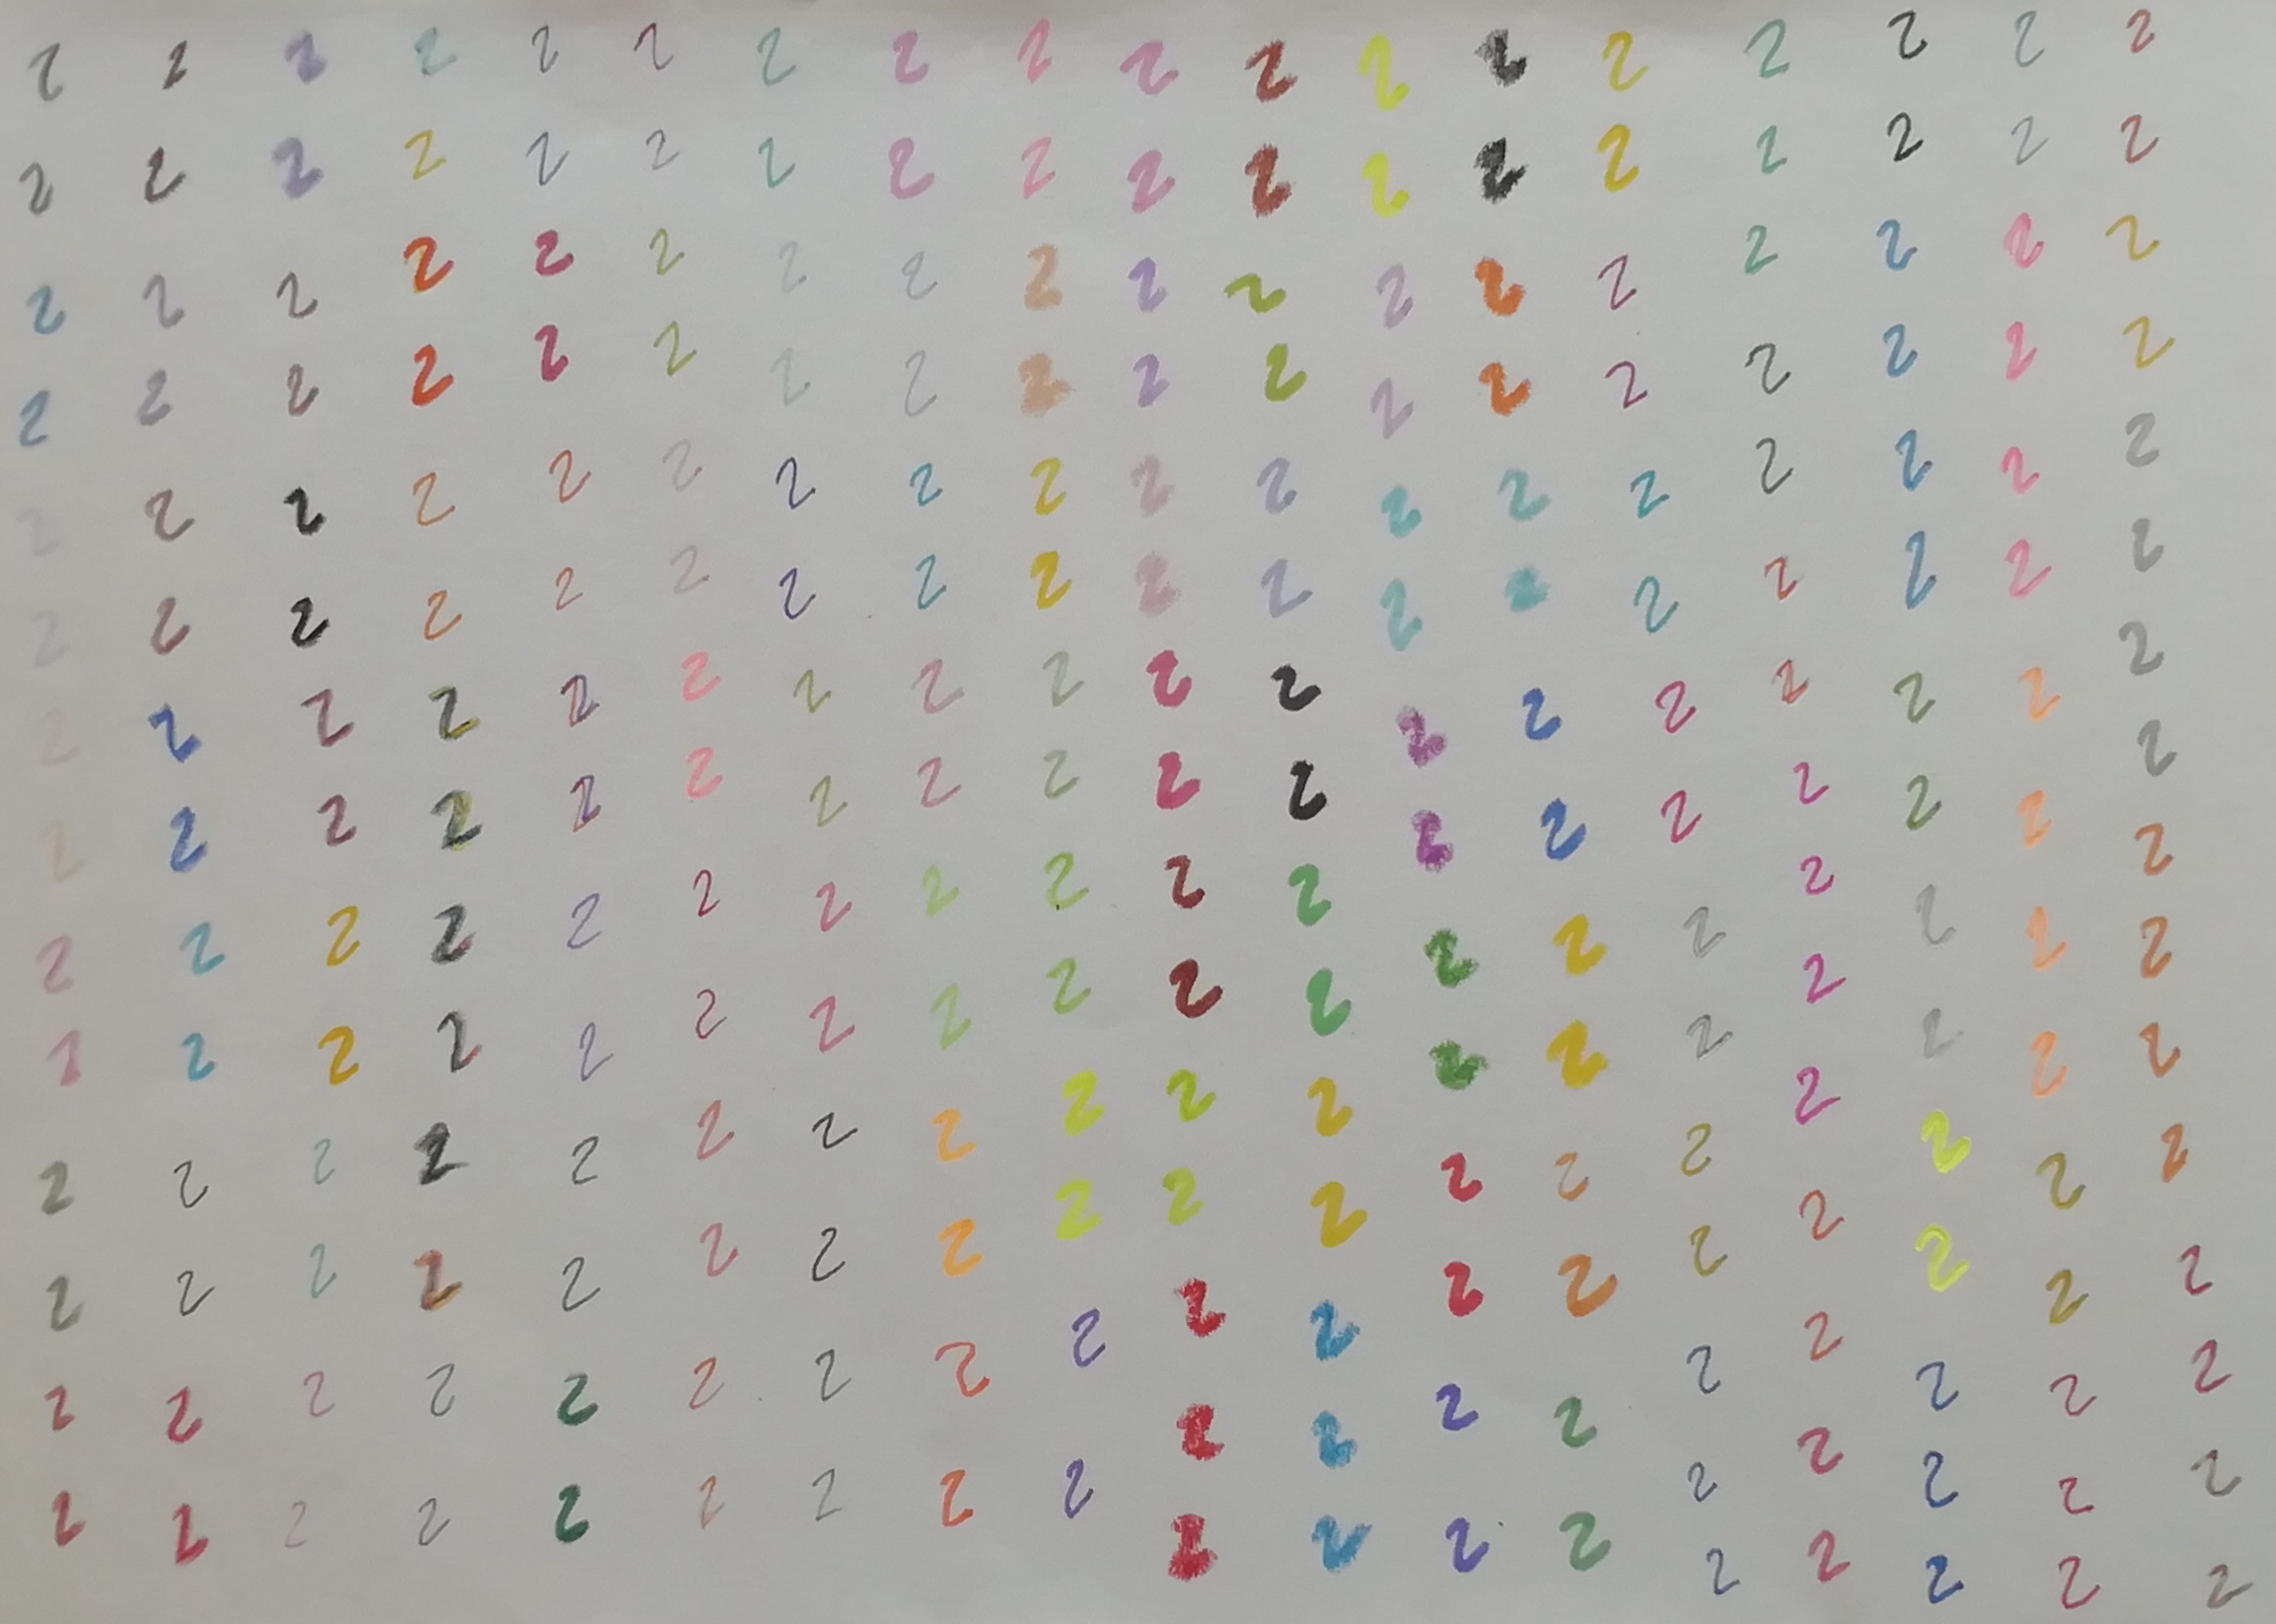 2 2 2 2 2 2 2 2 2 2 2 2 2 2 2 2 2 2
2 2 2 2 2 2 2 2 2 2 2 2 2 2 2 2 2 2
2 2 2 2 2 2 2 2 2 2 2 2 2 2 2 2 2 2
2 2 2 2 2 2 2 2 2 2 2 2 2 2 2 2 2 2
2 2 2 2 2 2 2 2 2 2 2 2 2 2 2 2 2 2
2 2 2 2 2 2 2 2 2 2 2 2 2 2 2 2 2 2
2 2 2 2 2 2 2 2 2 2 2 2 2 2 2 2 2 2
2 2 2 2 2 2 2 2 2 2 2 2 2 2 2 2 2 2
2 2 2 2 2 2 2 2 2 2 2 2 2 2 2 2 2 2
2 2 2 2 2 2 2 2 2 2 2 2 2 2 2 2 2 2
2 2 2 2 2 2 2 2 2 2 2 2 2 2 2 2 2 2
2 2 2 2 2 2 2 2 2 2 2 2 2 2 2 2 2 2
2 2 2 2 2 2 2 2 2 2 2 2 2 2 2 2 2 2
2 2 2 2 2 2 2 2 2 2 2 2 2 2 2 2 2 2
2 2 2 2 2 2 2
2